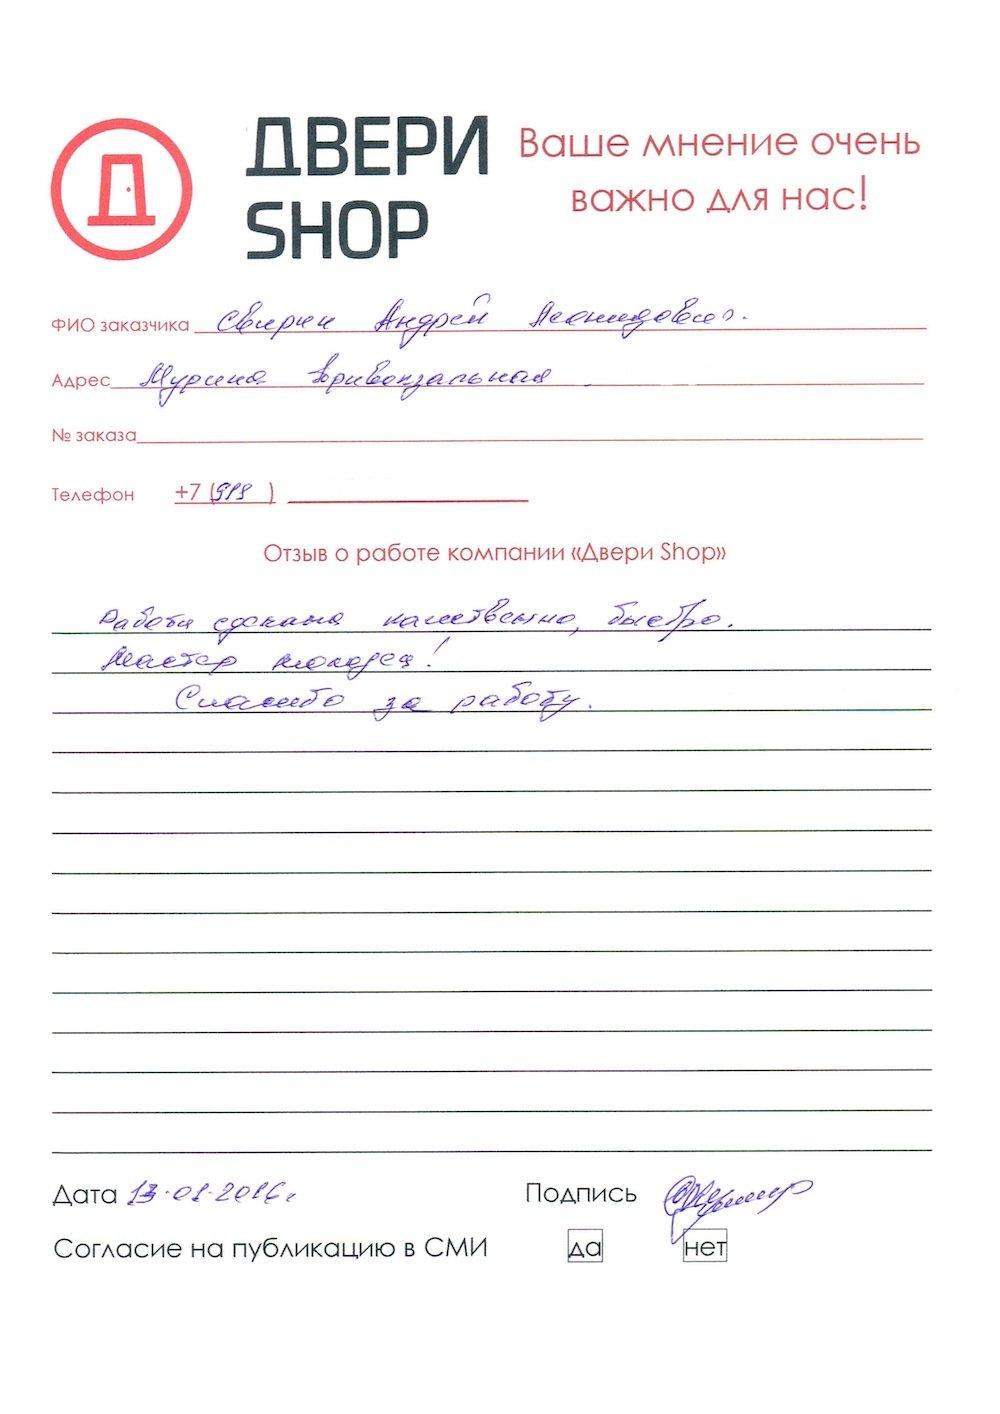 ДВЕРИ
SHOP
Ваше мнение очень
важно для нас!
ФИО заказчика Свирин Андрей Леонидович.
Адрес Мурина Привокзальная
№ заказа
Телефон +7 (918 )
Отзыв о работе компании «Двери Shop»
Работа сделана качественно, быстро.
Мастер молодец!
Спасибо за работу.
Дата 13.01.2016г
Подпись
Согласие на публикацию в СМИ да нет